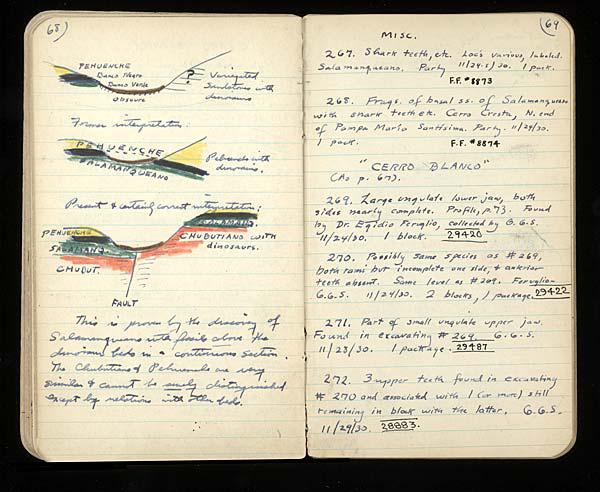 68
PEHUENCHE
Banco Negro
Banco Verde
Obscure
?
Variegated
Sandstones with
dinosaurs
Former interpretation:
PEHUENCHE
SALAMANQUEANO
Pehuenche with
dinosaurs.
Present & certainly correct interpretation:
PEHUENCHE
SALAMANQ.
CHUBUT.
SALAMANQ.
CHUBUTIANO WITH
dinosaurs.
FAULT
This is proven by the discovery of
Salamanqueano with fossils above the
dinosaur beds in a continuous section.
The Chubutiano & Pehuenche are very
similar & cannot be surely distinguished
except by relations with other beds.
69
MISC.
267. Shark teeth, etc. Loc's various, labeled.
Salamanqueano. Party 11/29-5/30. 1 pack.
F.F. #8873
268. Frags. of basal ss. of Salamanqueano
with shark teeth etc. Cerro Crosta, N. end
of Pampa María Santísima. Party. 11/29/30.
1 pack. F.F. #8874
"CERRO BLANCO"
(As p. 67).
269. Large ungulate lower jaw, both
sides nearly complete. Profile, p. 73. Found
by Dr. Egidio Feruglio, collected by G.G.S.
11/24/30. 1 block. 29420
270. Possibly same species as #269,
both rami but incomplete one side, & anterior
teeth absent. Same level as #269. Feruglio-
G.G.S. 11/29/30. 2 blocks, 1 package. 29422
271. Part of small ungulate upper jaw.
Found in excavating #269. G.G.S.
11/23/30. 1 package. 29487
272. 3 upper teeth found in excavating
#270 and associated with 1 (or more) still
remaining in block with the latter. G.G.S.
11/29/30. 28883.